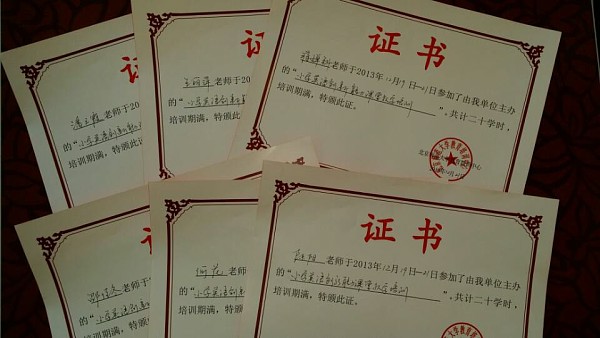 老师于2
的“小学英语创新融入
培训期满，特颁此
证
王丽萍 老师于20
的“小学英语创新
培训期满，特颁此证
证书
老师于2013年12月19日—21日参加了由我单位主办
的“小学英语创新融入课堂教学培训”，共计二十学时，
培训期满，特颁此证。
北京
中心
老师于
的“小学英语创
培训期满，特
证
何花 老师
的“小学英语创新
培训期满，特颁此证
证书
陈阳 老师于2013年12月19日—21日参加了由我单位主办
的“小学英语创新融入课堂教学培训”，共计二十学时，
培训期满，特颁此证。